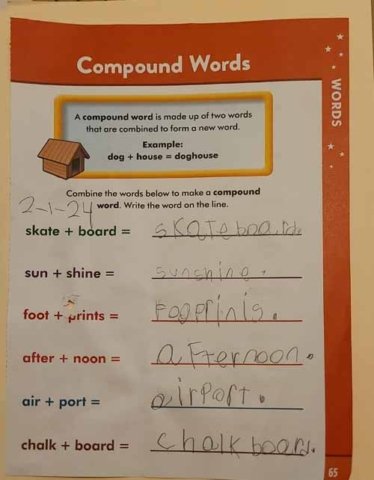 Compound Words
WORDS
A compound word is made up of two words
that are combined to form a new word.
Example:
dog + house = doghouse
Combine the words below to make a compound
word. Write the word on the line.
2-1-24
skate + board = skateboard.
sun + shine = sunshine.
foot + prints = 
after + noon = afternoon.
air + port = airport.
chalk + board = chalkboard.
65